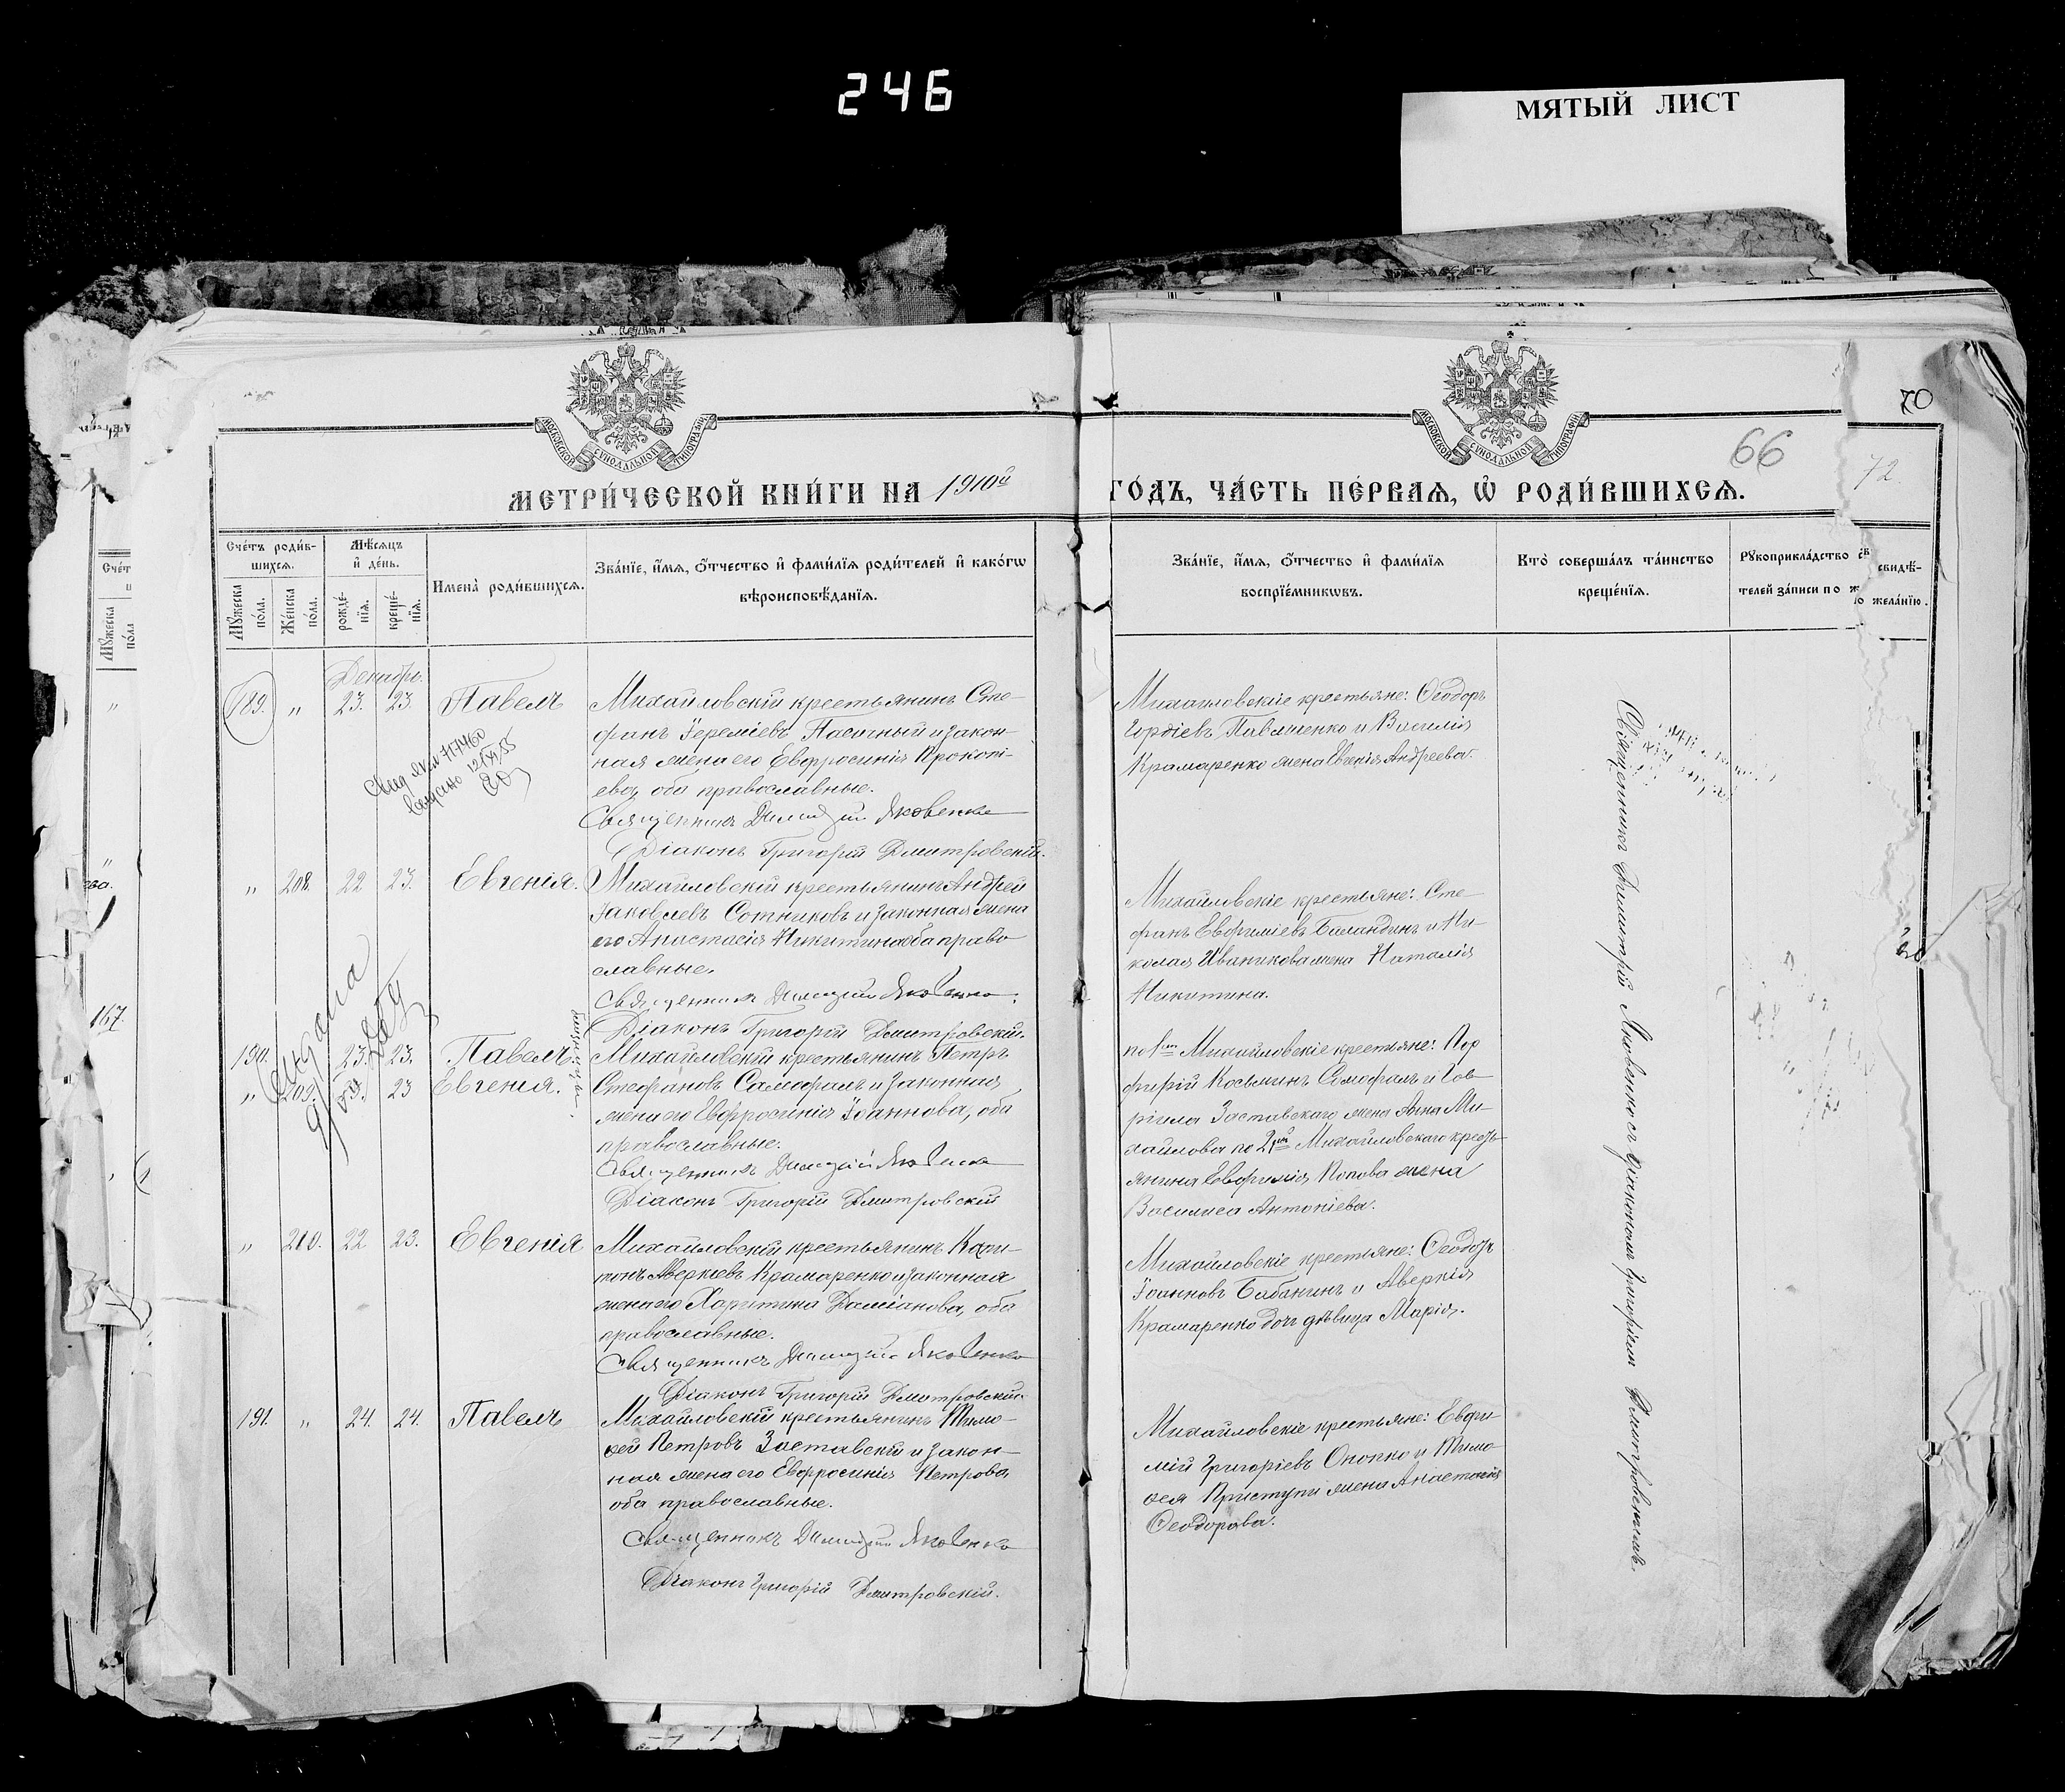 246
МЯТЫЙ ЛИСТ
70
66
72.
МЕТРИ́ЧЕСКОЙ КНИ́ГИ НА 1910й ГО́ДЪ, ЧА́СТЬ ПЕ́РВАѦ, Ѽ РОДИ́ВШИХСѦ.
Сче́тъ роди́вшихсѧ.
Мѣ́сѧцъ и҆ де́нь.
Имена̀ роди́вшихсѧ.
Зва́нїе, и҆́мѧ, ѻ҆́тчество и҆ фами́лїѧ роди́телей и҆ како́гѡ
вѣроисповѣ́данїѧ.
Зва́нїе, и҆́мѧ, ѻ҆́тчество и҆ фами́лїѧ
воспрїе́мникѡвъ.
Кто̀ соверша́лъ та́инство
креще́нїѧ.
Рꙋкоприкла́дство свидѣ́-
телей за́писи по жела́нїю.
Мꙋ́жеска по́ла.
Же́нска по́ла.
рожде́-нїѧ.
креще́-нїѧ.
Декабрь.
189. " 23. 23. Павелъ
Михайловскій крестьянинъ Сте-
фанъ Іереміевъ Пасичный и закон-
ная жена его Евфросинія Прокопі-
ева, оба православные.
Священникъ Димитрій Яковенко
Діаконъ Григорій Дмитровскій.
Михайловскіе крестьяне: Ѳеодоръ
Гордіевъ Павличенко и Василія
Крамаренко жена Евгенія Андреева.
" 208. 22 23. Евгенія.
Михайловскій крестьянинъ Андрей
Іаковлевъ Сотниковъ и законная жена
его Анастасія Никитина оба право-
славные.
Священникъ Димитрій Яковенко.
Діаконъ Григорій Дмитровскій.
Михайловскіе крестьяне: Сте-
фанъ Евфиміевъ Баландинъ и Ни-
колая Иваникова жена Наталія
Никитина.
190. 23. 23. Павелъ
" 209. 23. 23 Евгенія.
близнецы.
Михайловскій крестьянинъ Петръ
Стефановъ Самофалъ и законная
жена его Евфросинія Іоаннова, оба
православные.
Священникъ Димитрій Яковенко
Діаконъ Григорій Дмитровскій
по 1му Михайловскіе крестьяне: Пор
фирій Косьминъ Самофалъ и Гав-
ріила Заставскаго жена Анна Ми-
хайлова по 2му Михайловскаго кресть-
янина Евфимія Попова жена
Василиса Антоніева.
" 210. 22 23. Евгенія
Михайловскій крестьянинъ Кари-
тонъ Аверкіевъ Крамаренко и законная
жена его Харитина Даміанова, оба
православные.
Священникъ Димитрій Яковенко
Діаконъ Григорій Дмитровскій
Михайловскіе крестьяне: Ѳеодоръ
Іоанновъ Бабанинъ и Аверкія
Крамаренко дочь дѣвица Марія.
191. " 24. 24. Павелъ
Михайловскій крестьянинъ Тимо-
ѳей Петровъ Заставскій и закон-
ная жена его Евфросинія Петрова,
оба православные.
Священникъ Димитрій Яковенко
Діаконъ Григорій Дмитровскій.
Михайловскіе крестьяне: Евфи-
мій Григоріевъ Онопко и Тимо-
ѳея Приступы жена Анастасія
Ѳеодорова.
Священникъ Димитрій Яковенко съ діакономъ Григоріемъ Дмитровскимъ.
167.